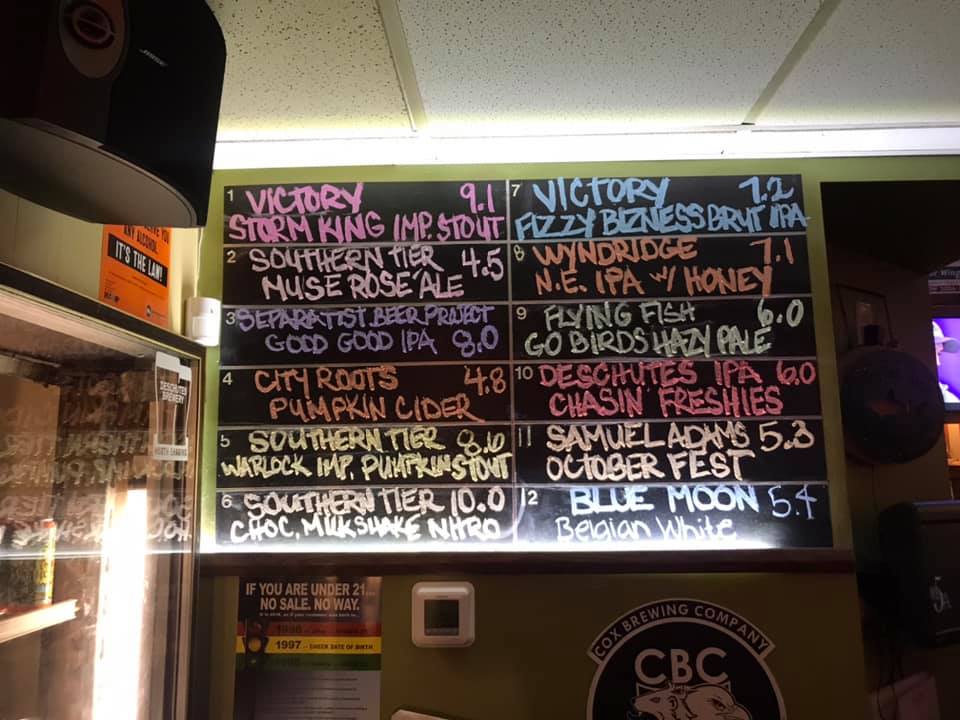 BOSE
ANY ALCOHOL.
IT'S THE LAW!
DESCHUTES
BREWERY
1 VICTORY 9.1
STORM KING IMP. STOUT
2 SOUTHERN TIER 4.5
MUSE ROSE ALE
3 SEPARATIST BEER PROJECT
GOOD GOOD IPA 8.0
4 CITY ROOTS 4.8
PUMPKIN CIDER
5 SOUTHERN TIER 8.6
WARLOCK IMP. PUMPKIN STOUT
6 SOUTHERN TIER 10.0
CHOC. MILKSHAKE NITRO
7 VICTORY 7.2
FIZZY BIZNESS BRUT IPA
8 WYNDRIDGE 7.1
N.E. IPA W/ HONEY
9 FLYING FISH 6.0
GO BIRDS HAZY PALE
10 DESCHUTES IPA 6.0
CHASIN FRESHIES
11 SAMUEL ADAMS 5.3
OCTOBER FEST
12 BLUE MOON 5.4
Belgian White
IF YOU ARE UNDER 21...
NO SALE. NO WAY.
1996
1997 - CHECK DATE OF BIRTH
COX BREWING COMPANY
CBC